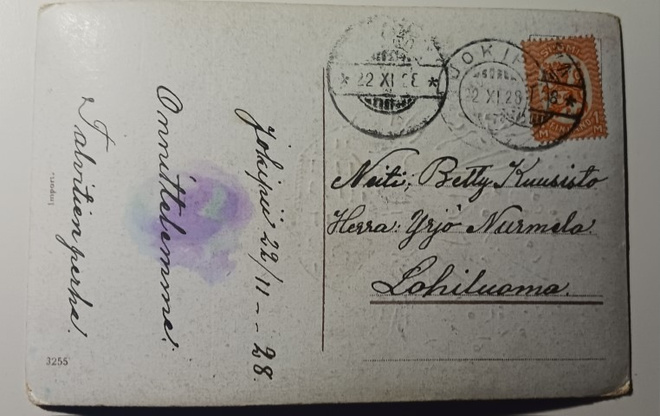 Jokipii 22/11 - - 28.
Onnittelemme.
T. Talvitien perhe.
Import.
3255
* 22 XI 28 *
JOKIPII
22 XI 28
SUOMI
Neiti, Betty Kuusisto
Herra: Yrjö Nurmela.
Lohiluoma.